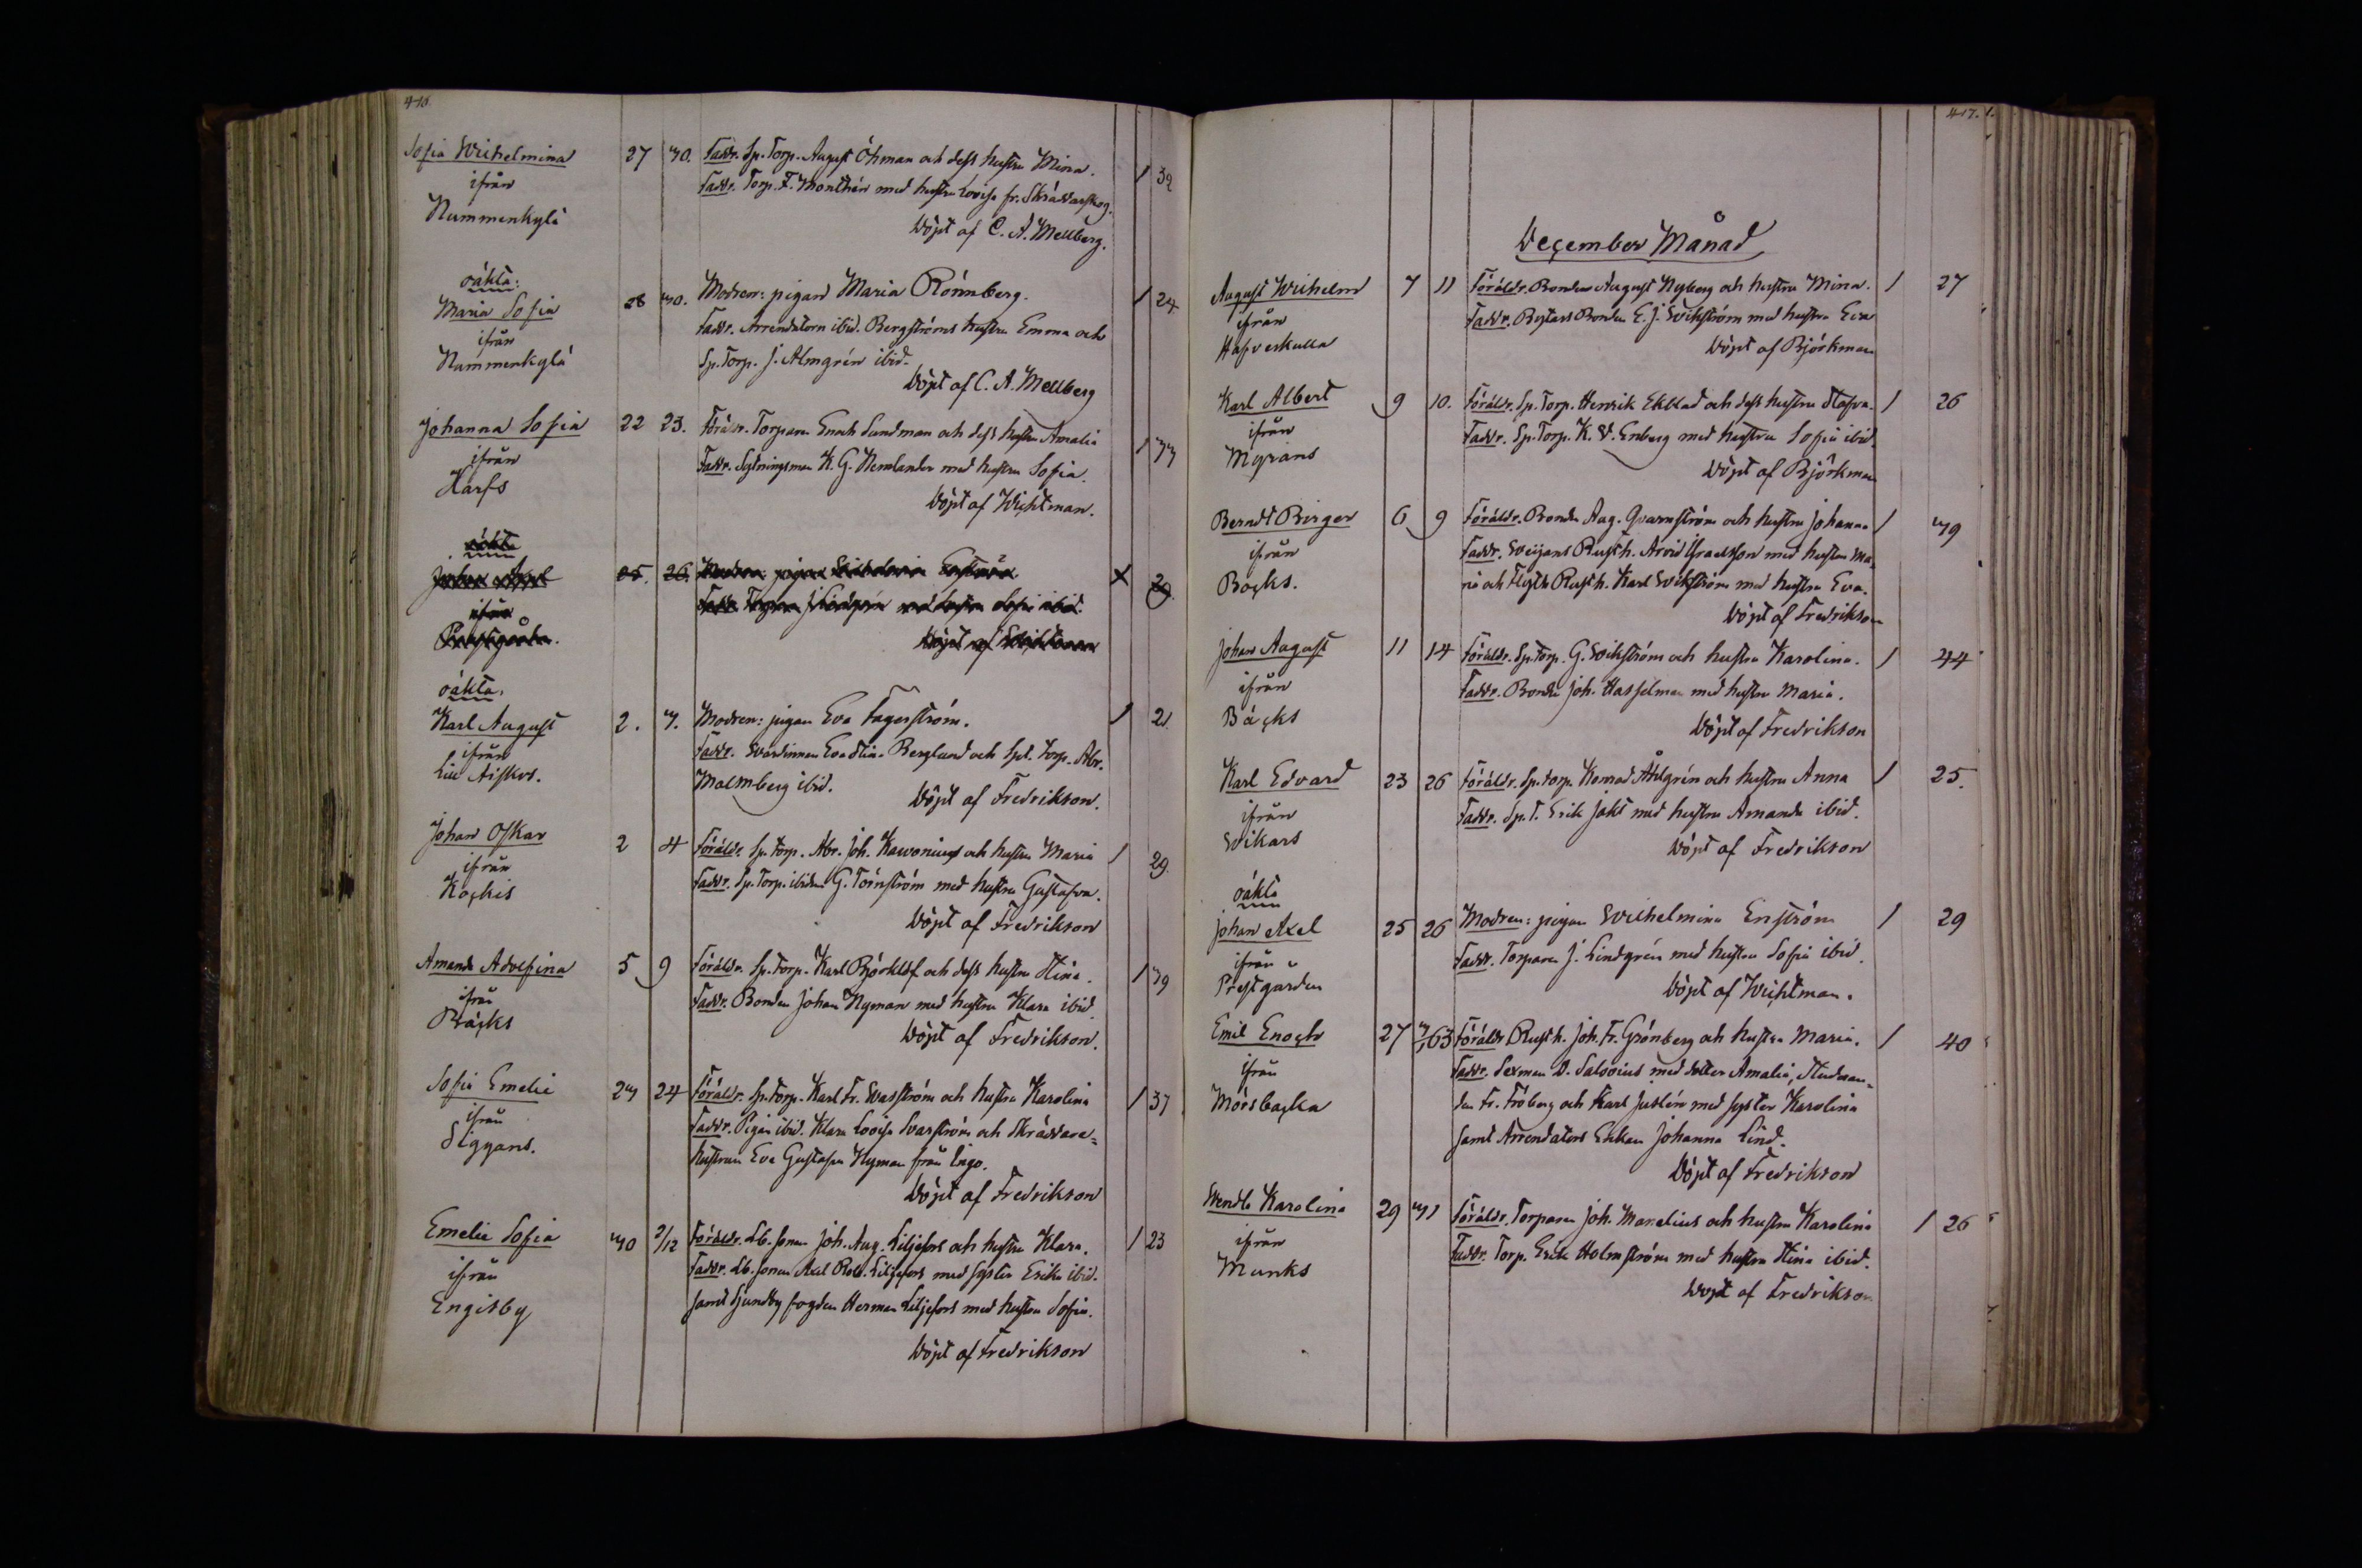 416.
Sofia Wilhelmina 27 30. Faddr. Sp. Torp. August Öhman och dess hustru Mina. / 32
ifrån Faddr. Torp. F. Monthén med hustru Lovisa fr. Skräddarskog.
Nummenkylä Döpt af C. A. Mellberg.
oäkta:
Maria Sofia 28 30. Modren: pigan Maria Rönnberg. / 24
ifrån Faddr. Arrendatorn ibid. Bergströms hustru Emma och
Nummenkylä Sp. Torp. J. Almgrén ibid.
Döpt af C. A. Mellberg
Johanna Sofia 22 23. Föräldr. Torparen Enoch Sundman och dess hustru Amalia / 33
ifrån Faddr. Sytningsman K. G. Nemlander med hustru Sofia.
Harfs Döpt af Wichtman.
oäkta
Johan Axel 25. 26. Modren pigan Wilhelmina Enström X 29.
ifrån Faddr. Torparen J. Lindgrén med hustru Sofia ibid.
Prestgården. Döpt af Wichtman
oäkta.
Karl August 2. 3. Modren: pigan Eva Fagerström. / 21
ifrån Faddr. Värdinnan Eva Stina Berglund och Spl. Torp. Abr.
Lill Aiskos. Malmberg ibid. Döpt af Fredrikson.
Johan Oskar 2 4 Föräldr. Sp. Torp. Abr. Joh. Kawonius och hustru Maria / 29.
ifrån Faddr. Sp. Torp. ibidem G. Törnström med hustru Gustafva.
Köckis Döpt af Fredrikson
Amanda Adolfina 5 9 Föräldr. Sp. Torp. Karl Björklöf och dess hustru Stina. / 39
ifrån Faddr. Bonden Johan Nyman med hustru Klara ibid.
Bäcks Döpt af Fredrikson.
Sofia Emelie 23 24 Föräldr. Sp. Torp. Karl Fr. Wasström och hustru Karolina / 37
ifrån Faddr. Pigan ibid. Klara Lovisa Svarström och Skräddare-
Siggans. hustrun Eva Gustafva Nyman från Ingo.
Döpt af Fredrikson
Emelie Sofia 30 2/12 Föräldr. Lb. sonen Joh. Aug. Liljefors och hustru Klara. / 23
ifrån Faddr. Lb. sonen Axel Rob. Liljefors med syster Erika ibid.
Engisby samt Sjundby fogden Herman Liljefors med hustru Sofia.
Döpt af Fredrikson
417.
December Månad
August Wilhelm 7 11 Föräldr. Bonden August Nyberg och hustru Mina. / 27
ifrån Faddr. Bonden E. J. Wikström med hustru Eva
Hafverkulla Döpt af Björkman
Karl Albert 9 10. Föräldr. Sp. Torp. Henrik Ekblad och dess hustru Stafva. / 26
ifrån Faddr. Sp. Torp. K. W. Enberg med hustru Sofia ibid.
Myrans Döpt af Björkman
Berndt Birger 6 9 Föräldr. Bonden Aug. Qvarnström och hustru Johanna / 39
ifrån Faddr. Rusth. Arvid Israelsson med hustru Ma-
Bocks. ria och Flyt Rusth. Karl Wikström med hustru Eva.
Döpt af Fredrikson
Johan August 11 14 Föräldr. Sp. Torp. G. Wikström och hustru Karolina. / 44
ifrån Faddr. Bonden Joh. Hasselman med hustru Maria.
Bäcks Döpt af Fredrikson
Karl Edvard 23 26 Föräldr. Sp. Torp. Konrad Åhlgrén och hustru Anna / 25.
ifrån Faddr. Sp. T. Erik Jakt med hustru Amanda ibid.
Wikars Döpt af Fredrikson
oäkta
Johan Axel 25 26 Modren: pigan Wilhelmina Enström / 29
ifrån Faddr. Torparen J. Lindgrén med hustru Sofia ibid.
Prestgården Döpt af Wichtman.
Emil Enoch 27 3/1 63 Föräldr. Rusth. Joh. Fr. Grönberg och hustru Maria. / 40
ifrån Faddr. Sexman D. Salovius med dotter Amalia, Studeran-
Mörsbacka den Fr. Fröberg och Karl Juslén med syster Karolina
samt Arrendators Enkan Johanna Lind.
Döpt af Fredrikson
Wendla Karolina 29 31 Föräldr. Torparen Joh. Marelius och hustru Karolina / 26
ifrån Faddr. Torp. Erik Holmström med hustru Stina ibid.
Munks Döpt af Fredrikson